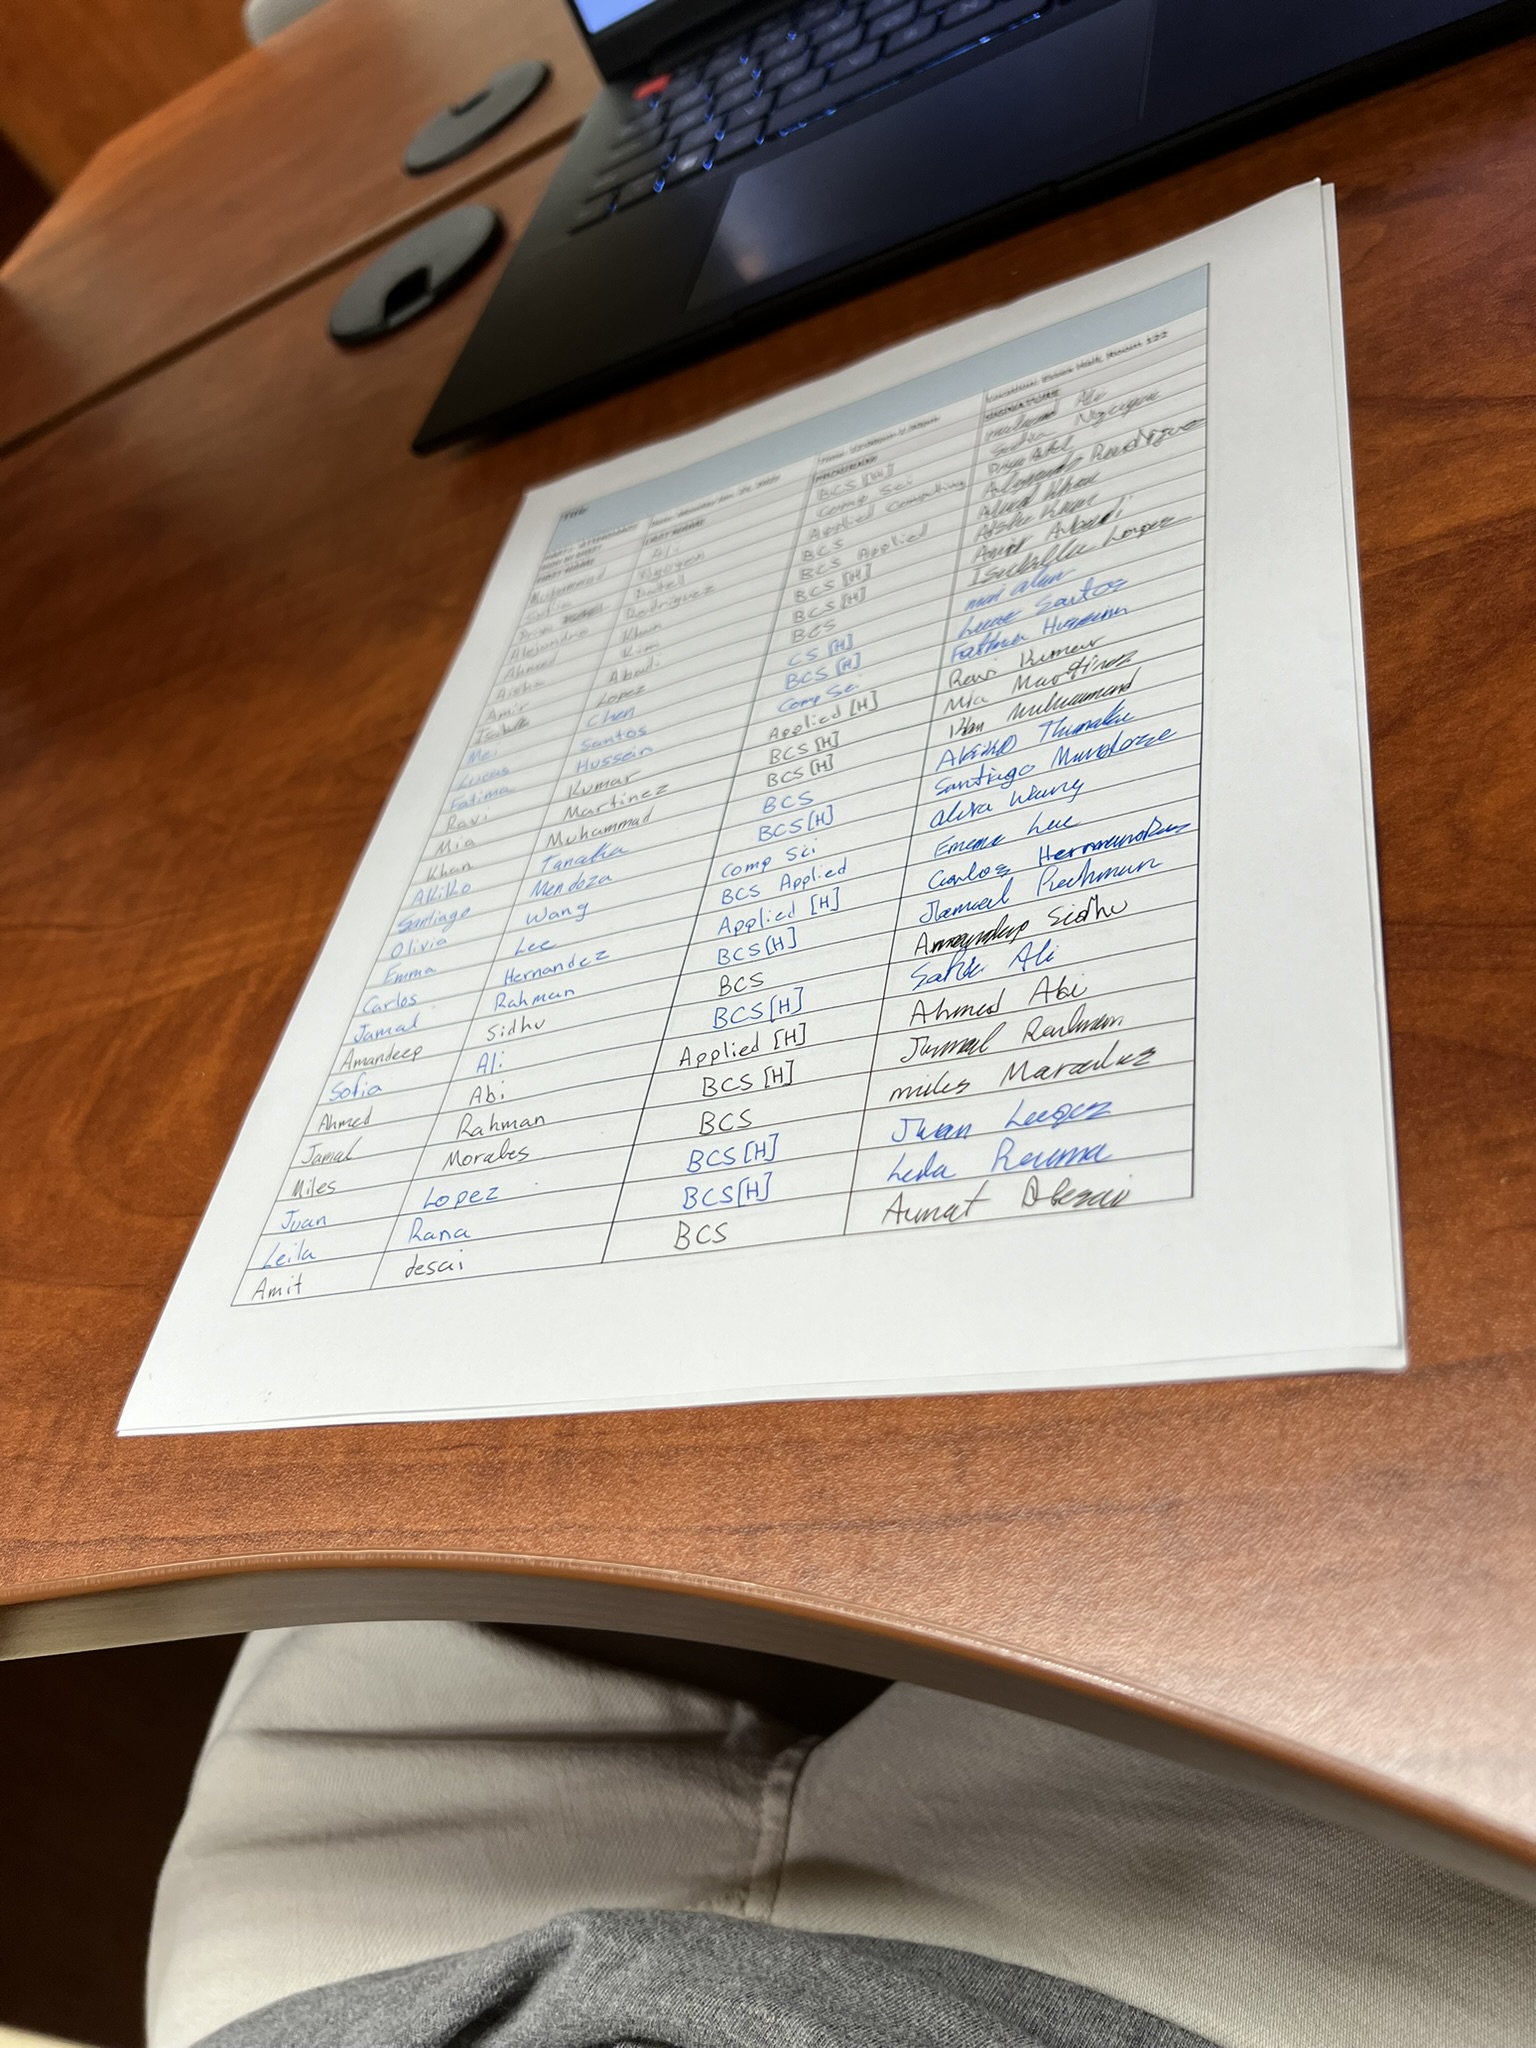 Title
FIRST NAME LAST NAME PROGRAM SIGNATURE
Muhammad Ali BCS [H]
Sofia Nguyen Comp Sci Sofia Nguyen
Priya Patel Applied Computing Priya Patel
Alejandro Rodriguez BCS Alejandro Rodriguez
Ahmed Khan BCS Applied Ahmed Khan
Aisha Kim BCS [H]
Amir Abadi BCS [H] Amir Abadi
Isabella Lopez BCS Isabella Lopez
Mei Chen CS [H]
Lucas Santos BCS [H] Santos
Fatima Hussein Comp Sci Fatima
Ravi Kumar Applied [H] Ravi Kumar
Mia Martinez BCS [H] Mia Martinez
Khan Muhammad BCS [H] Khan Muhammad
Akiko Tanaka BCS Akiko
Santiago Mendoza BCS [H] Santiago
Olivia Wang Comp Sci Wang
Emma Lee BCS Applied Lee
Carlos Hernandez Applied [H] Carlos Hernandez
Jamal Rahman BCS [H] Jamal
Amandeep Sidhu BCS Amandeep Sidhu
Sofia Ali BCS [H] Ali
Ahmed Abi Applied [H] Ahmed Abi
Jamal Rahman BCS [H] Jamal Rahman
Miles Morales BCS miles
Juan Lopez BCS [H] Juan
Leila Rana BCS [H] Leila
Amit desai BCS